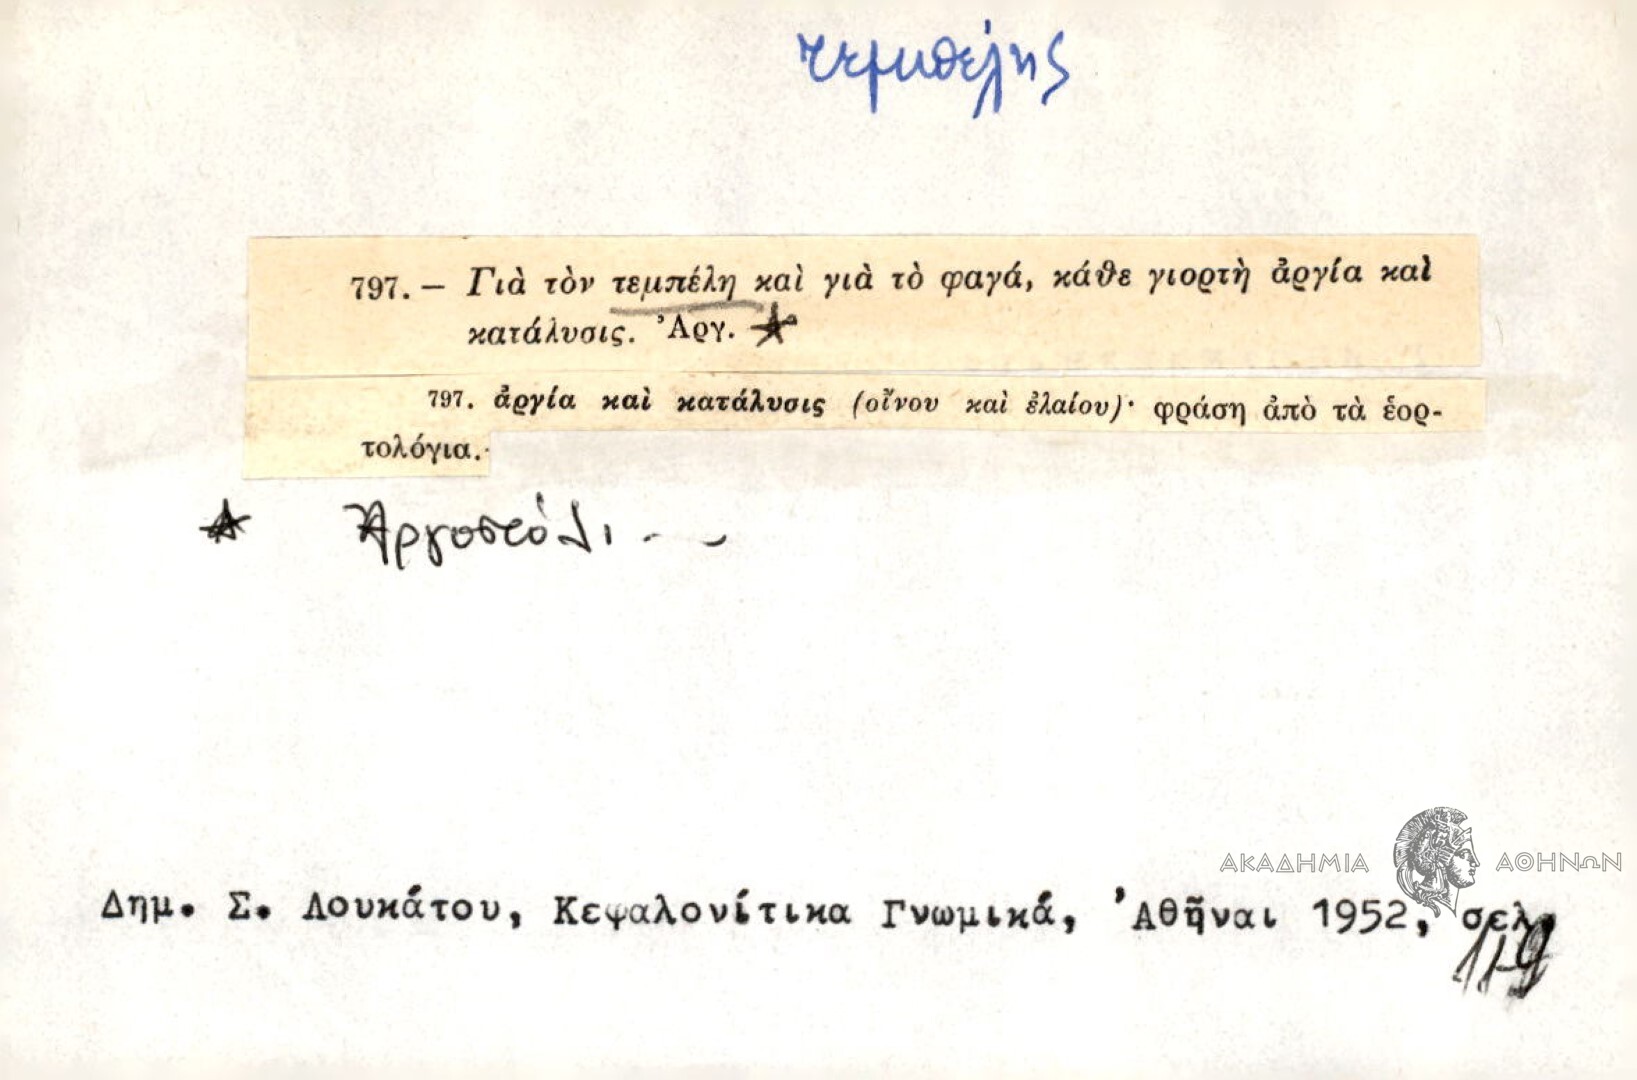 τεμπέλης
797. — Γιὰ τὸν τεμπέλη καὶ γιὰ τὸ φαγά, κάθε γιορτὴ ἀργία καὶ
κατάλυσις. Ἀργ. ★
797. ἀργία καὶ κατάλυσις (οἴνου καὶ ἐλαίου)· φράση ἀπὸ τὰ ἑορ-
τολόγια.
★ Ἀργοστόλι
ΑΚΑΔΗΜΙΑ ΑΘΗΝΩΝ
Δημ. Σ. Λουκάτου, Κεφαλονίτικα Γνωμικά, Ἀθῆναι 1952, σελ.